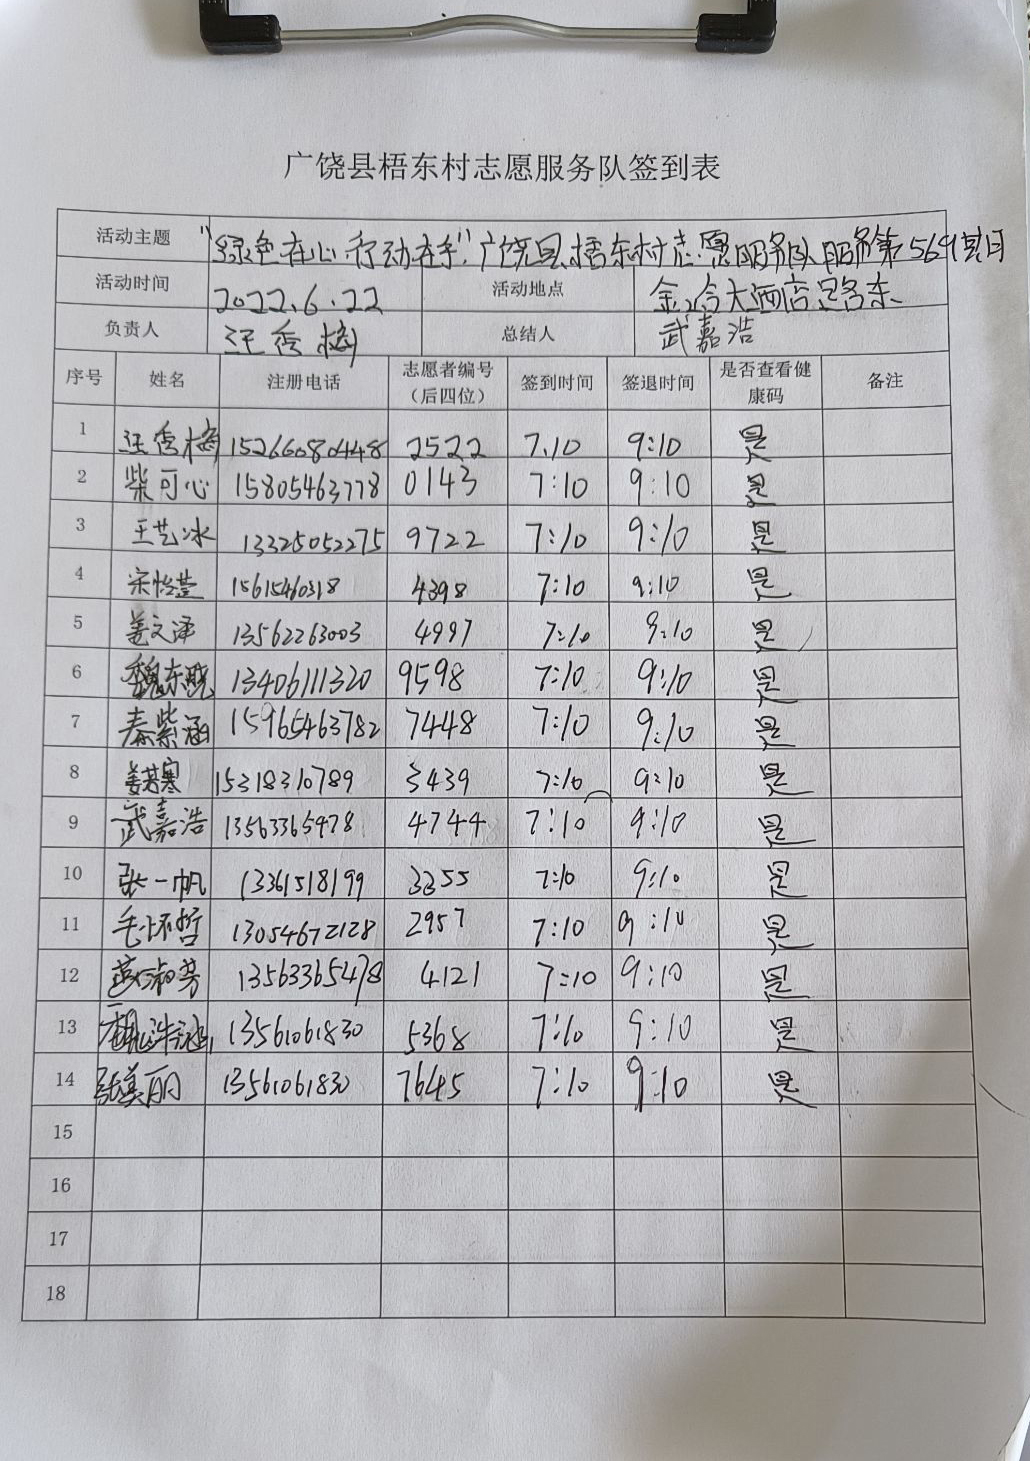 广饶县梧东村志愿服务队签到表
活动主题 "绿色在心 行动在手"广饶县梧东村志愿服务队服务第569期
活动时间 2022.6.22 活动地点 金岭大酒店路东
负责人 汪秀梅 总结人 武嘉浩
序号 姓名 注册电话 志愿者编号（后四位） 签到时间 签退时间 是否查看健康码 备注
1 汪秀梅 15266080448 2522 7.10 9:10 是
2 柴可心 15805463778 0143 7:10 9:10 是
3 王艺冰 13325052275 9722 7:10 9:10 是
4 宋怡莹 15615460318 4398 7:10 9:10 是
5 姜文泽 13562263003 4997 7:10 9:10 是
6 魏东晓 13406111320 9598 7:10 9:10 是
7 秦紫涵 15965463782 7448 7:10 9:10 是
8 姜若寒 15318310789 3439 7:10 9:10 是
9 武嘉浩 13563365478 4744 7:10 9:10 是
10 张一帆 13361518199 3355 7:10 9:10 是
11 毛怀哲 13054672128 2957 7:10 9:10 是
12 13563365478 4121 7:10 9:10 是
13 13561061830 5368 7:10 9:10 是
14 张美丽 13561061830 7645 7:10 9:10 是
15
16
17
18